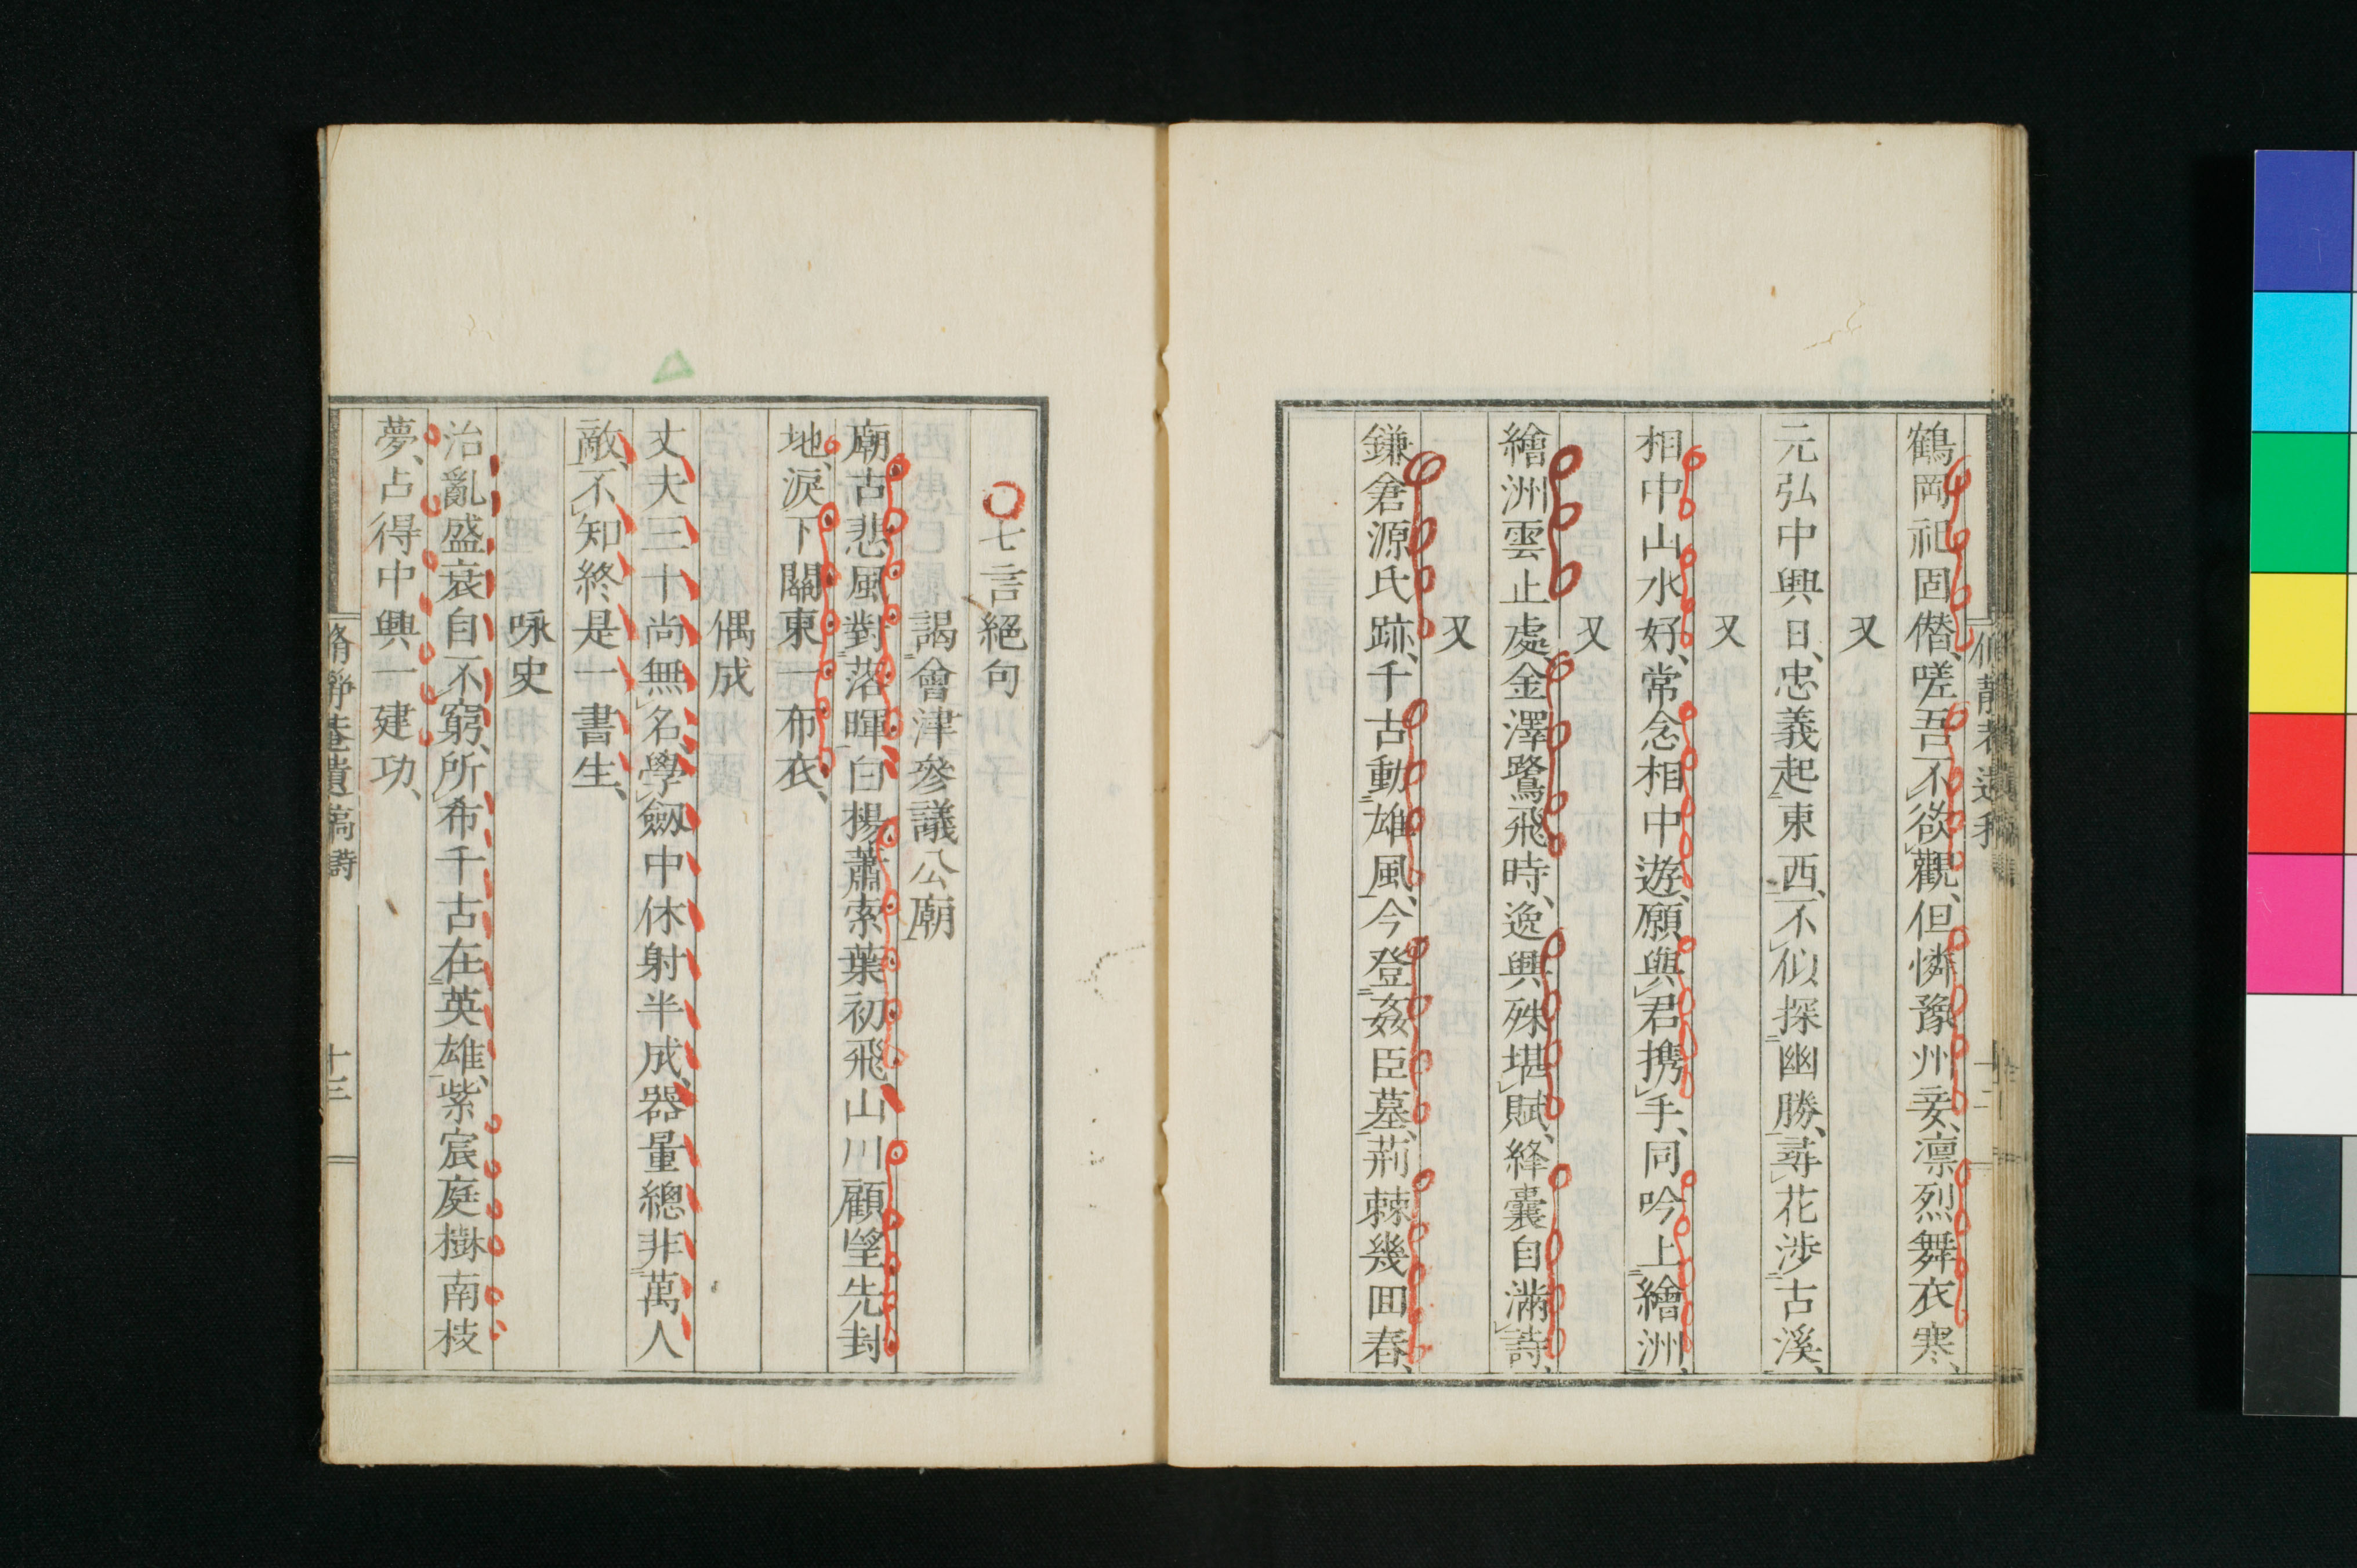 鶴岡祀固僭、嗟吾不欲觀、但憐豫州妾、凛烈舞衣寒、
又
元弘中興日、忠義起東西、不似探幽勝、尋花渉古溪、
又
相中山水好、常念相中遊、願與君携手、同吟上繪洲、
又
繪洲雲止處、金澤鷺飛時、逸興殊堪賦、絳囊自滿詩、
又
鎌倉源氏跡、千古動雄風、今登姦臣墓、荊棘幾回春、
七言絕句
謁會津參議公廟
廟古悲風對落暉、白楊蕭索葉初飛、山川顧望先封
地、淚下關東一布衣、
偶成
丈夫三十尚無名、學劔中休射半成、器量總非萬人
敵、不知終是一書生、
咏史
治亂盛衰自不窮、所希千古在英雄、紫宸庭樹南枝
夢、占得中興一建功、
脩靜菴遺稿 詩
十三